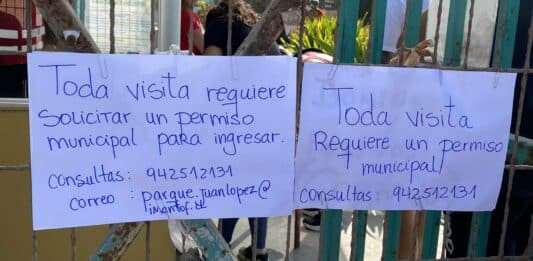 Toda visita requiere
Solicitar un permiso
municipal para ingresar.
consultas: 942512131
correo : parque.juanlopez@
imantof.cl
Toda visita
Requiere un permiso
municipal
consultas: 942512131